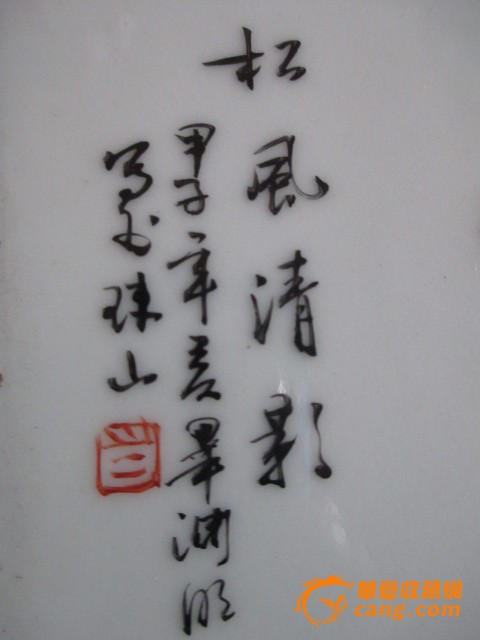 松風清影
甲子年夏畢渊明
写於珠山
華夏收藏網
cang.com